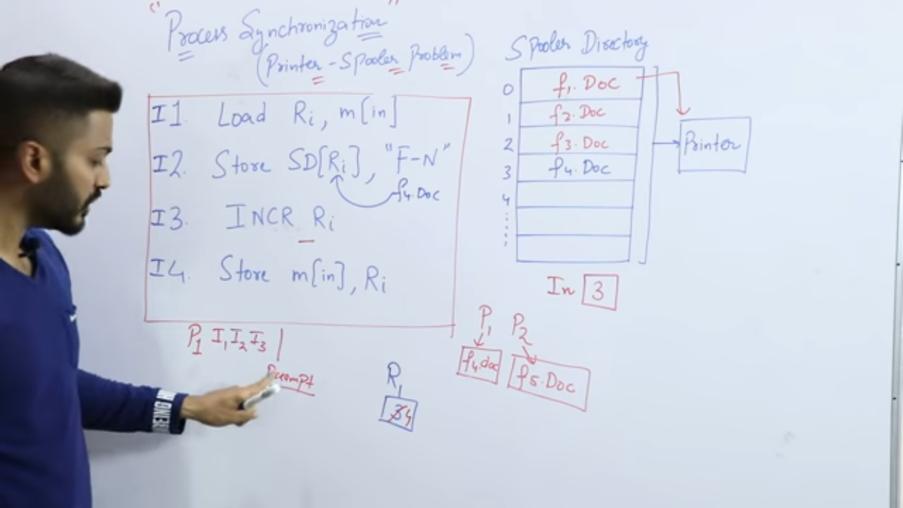 "Process Synchronization"
(Printer-Spooler Problem)
I1. Load Ri, m[in]
I2. Store SD[Ri], "F-N"
f4.Doc
I3. INCR Ri
I4. Store m[in], Ri
P1 I1 I2 I3 |
Preempt
R1
3 4
Spooler Directory
0 f1.Doc
1 f2.Doc
2 f3.Doc
3 f4.Doc
4
Printer
In 3
P1 P2
f4.doc f5.Doc